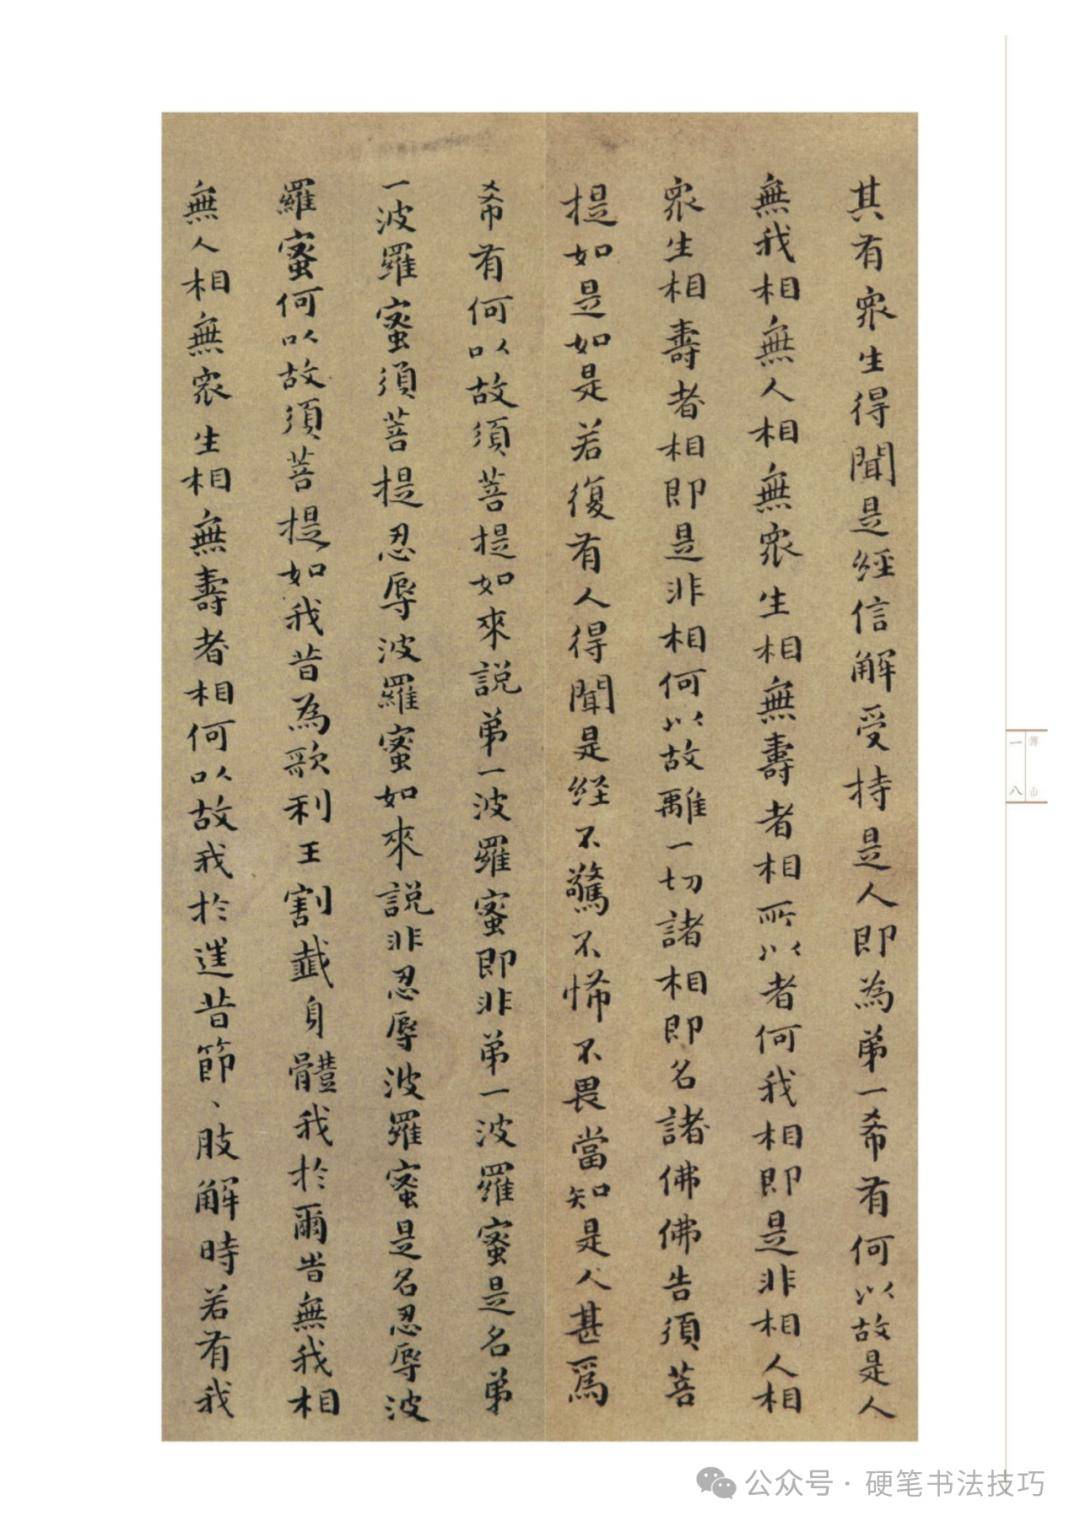 其有衆生得聞是經信解受持是人即為弟一希有何以故是人
無我相無人相無衆生相無壽者相所以者何我相即是非相人相
衆生相壽者相即是非相何以故離一切諸相即名諸佛佛告須菩
提如是如是若復有人得聞是経不驚不怖不畏當知是人甚爲
希有何以故須菩提如來説弟一波羅蜜即非弟一波羅蜜是名弟
一波羅蜜須菩提忍辱波羅蜜如來説非忍辱波羅蜜是名忍辱波
羅蜜何以故須菩提如我昔為歌利王割截身體我於爾時無我相
無人相無衆生相無壽者相何以故我於往昔節、肢解時若有我
傅山
一八
公众号·硬笔书法技巧